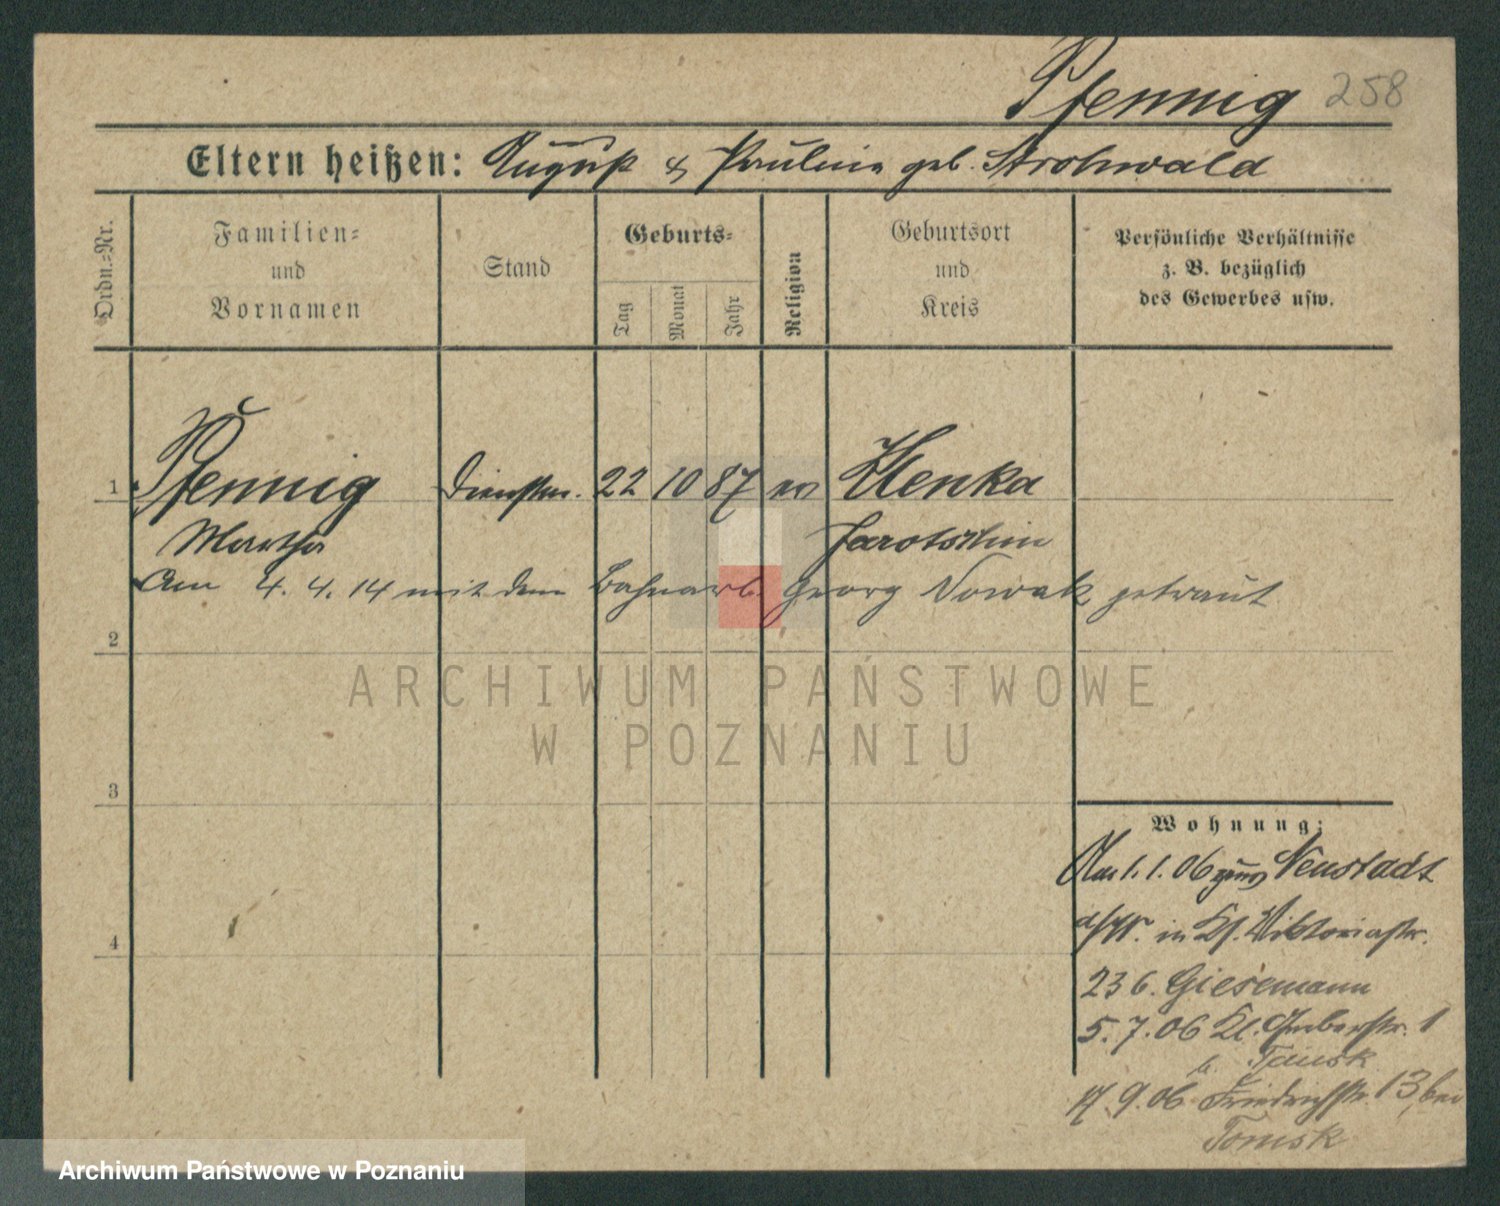 Pfennig 258
Eltern heißen: August & Pauline geb. Strohwald
Ordn.-Nr.
Familien-
und
Vornamen
Stand
Geburts-
Tag
Monat
Jahr
Religion
Geburtsort
und
Kreis
Persönliche Verhältnisse
z. B. bezüglich
des Gewerbes usw.
1 Pfennig Dienstm. 22 10 87 ev Hlenka
Martha Jarotschin
Am 4. 4. 14 mit dem Bahnarb. Georg Nowak getraut
2
3
4
ARCHIWUM PAŃSTWOWE
W POZNANIU
Wohnung:
Am 1. 1. 06 Neustadt
a/W. in Kl. Viktoriastr.
23 b. Giesemann
5. 7. 06 Kl. Gerberstr. 1
b. Tomsk
17. 9. 06 Friedrichstr. 13 bei
Tomsk
Archiwum Państwowe w Poznaniu